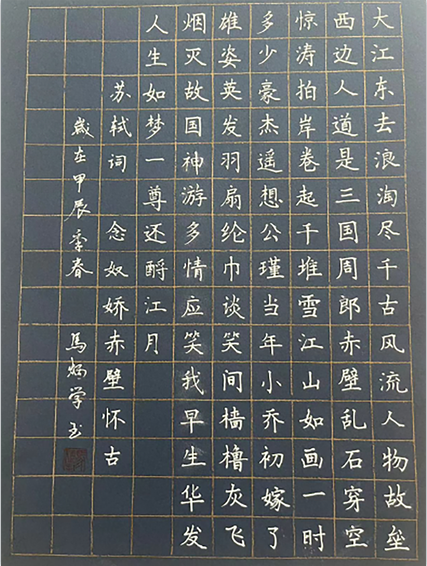 大江东去浪淘尽千古风流人物故垒
西边人道是三国周郎赤壁乱石穿空
惊涛拍岸卷起千堆雪江山如画一时
多少豪杰遥想公瑾当年小乔初嫁了
雄姿英发羽扇纶巾谈笑间樯橹灰飞
烟灭故国神游多情应笑我早生华发
人生如梦一尊还酹江月
苏轼词 念奴娇赤壁怀古
歲在甲辰季春 馬炳学书